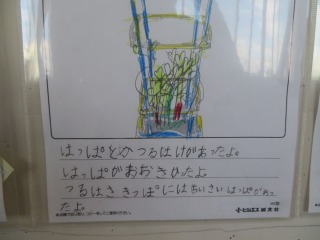 はっぱとかつるはけがあったよ。
はっぱがおおきかたよ
つるはさきっぽにはちいさいはっぱがあっ
たよ。